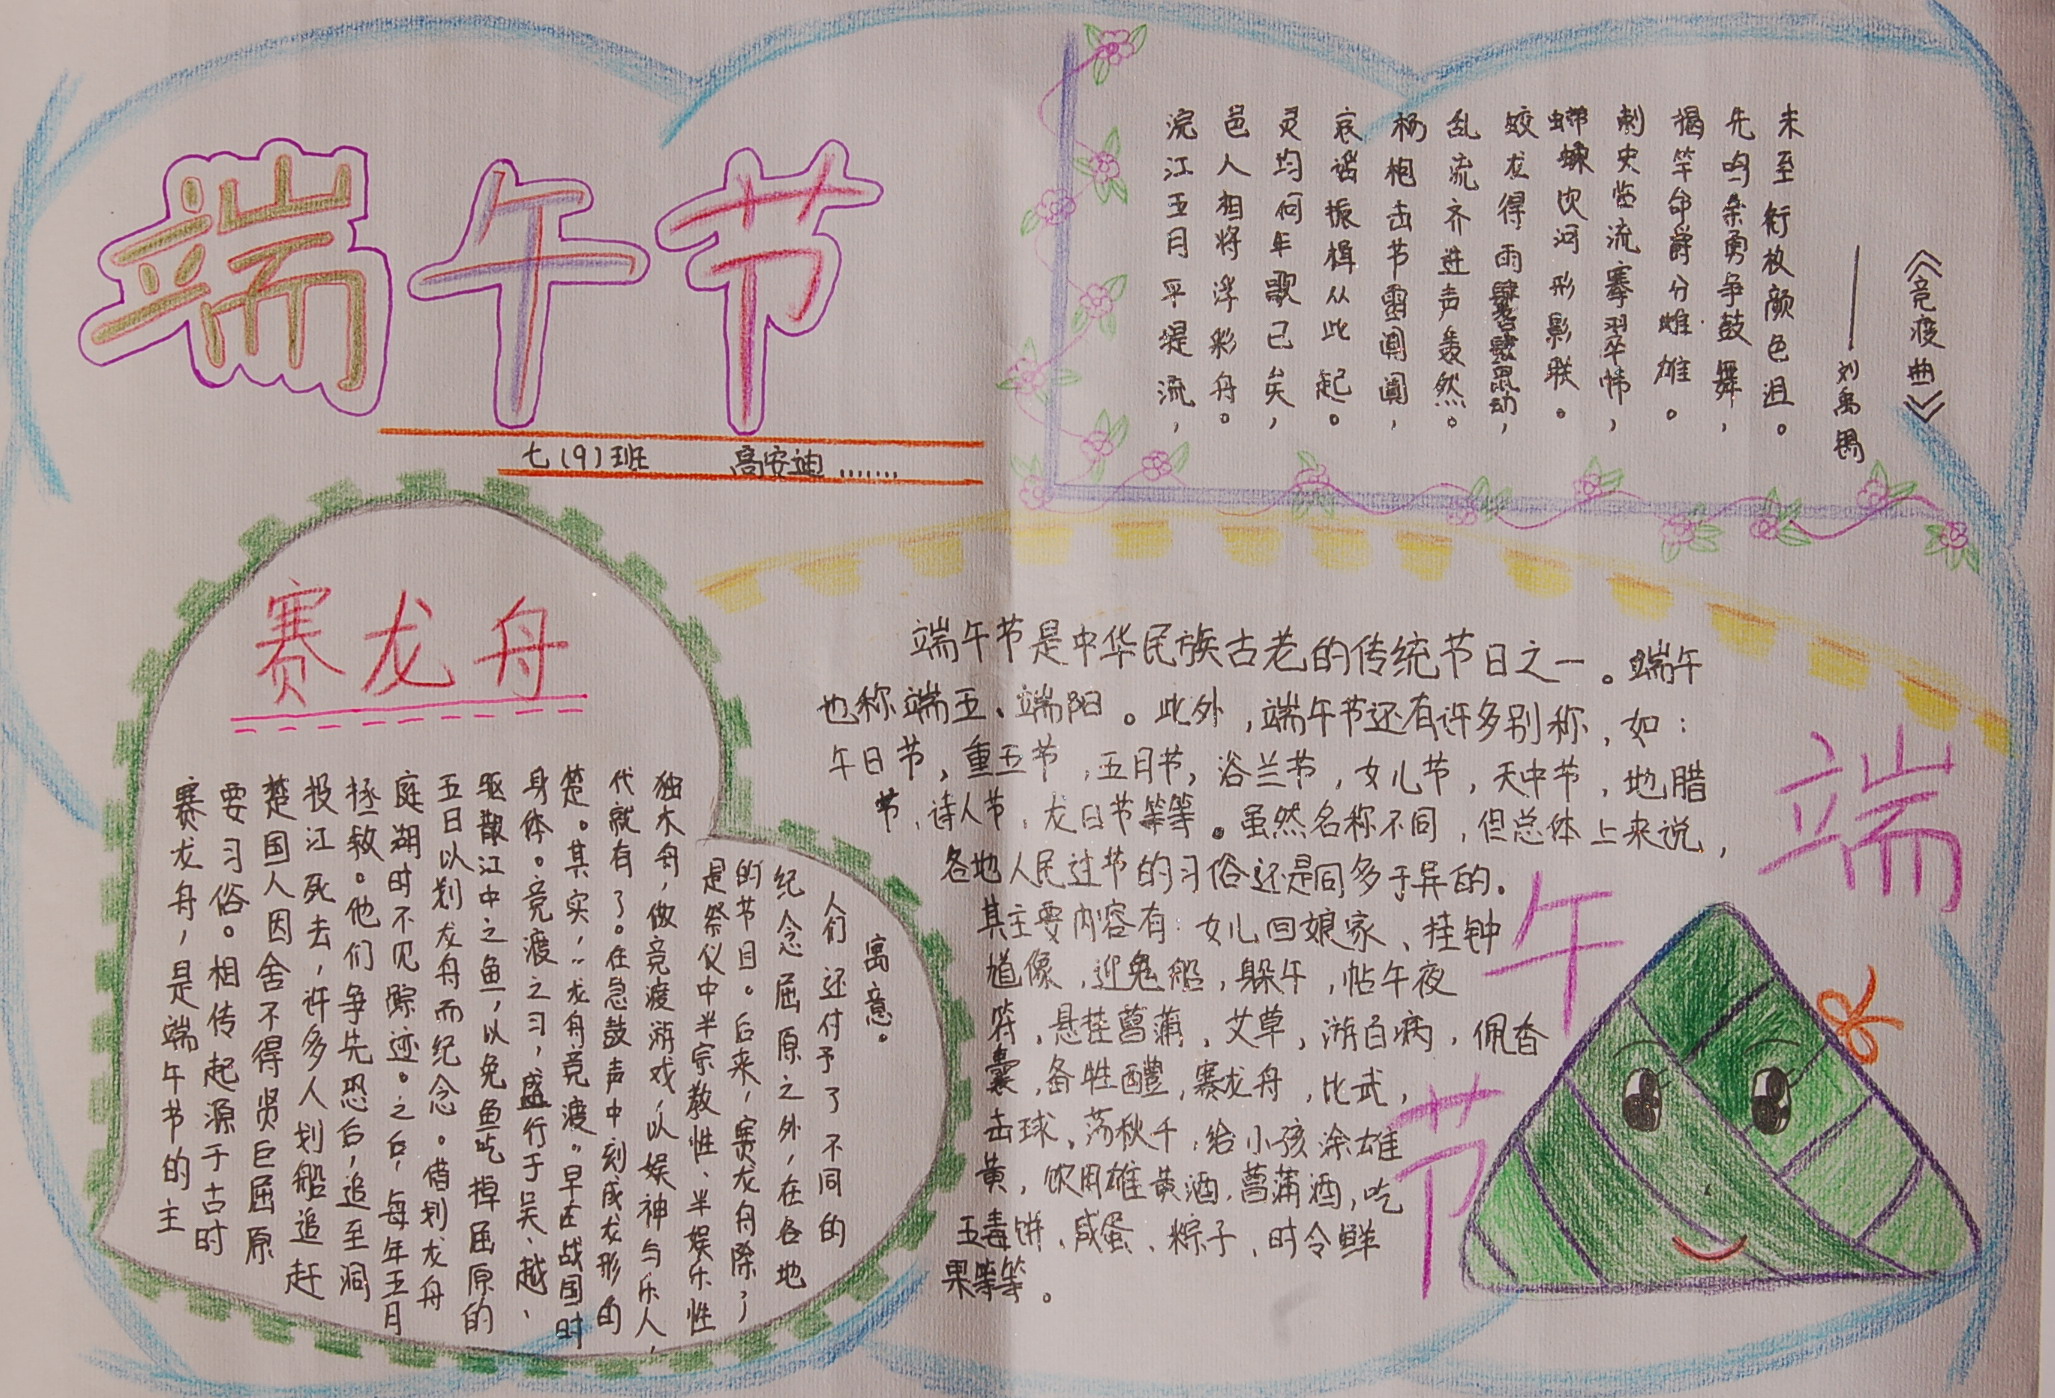 端午节
七(9)班 高安迪.......
《竞渡曲》
——刘禹锡
浣江五月平堤流,
邑人相将浮彩舟。
灵均何年歌已矣,
哀谣振楫从此起。
杨枹击节雷阗阗,
乱流齐进声轰然。
蛟龙得雨鬐鬣动,
螮蝀饮河形影联。
刺史临流褰翠帏,
揭竿命爵分雌雄。
先鸣余勇争鼓舞,
未至衔枚颜色沮。
赛龙舟
赛龙舟,是端午节的主
要习俗。相传起源于古时
楚国人因舍不得贤巨屈原
投江死去,许多人划船追赶
拯救。他们争先恐后,追至洞
庭湖时不见踪迹。之后,每年五月
五日以划龙舟而纪念。借划龙舟
驱散江中之鱼,以免鱼吃掉屈原的
身体。竞渡之习,盛行于吴、越、
楚。其实,“龙舟竞渡”早在战国时
代就有了。在急鼓声中刻成龙形的
独木舟,做竞渡游戏,以娱神与乐人,
是祭仪中半宗教性、半娱乐性
的节目。后来,赛龙舟除了
纪念屈原之外,在各地
人们还付予了不同的
寓意。
端午节是中华民族古老的传统节日之一。端午
也称端五、端阳。此外,端午节还有许多别称,如:
午日节,重五节,五月节,浴兰节,女儿节,天中节,地腊
节,诗人节,龙日节等等。虽然名称不同,但总体上来说,
各地人民过节的习俗还是同多于异的。
其主要内容有:女儿回娘家、挂钟
馗像,迎鬼船,躲午,帖午夜
符,悬挂菖蒲,艾草,游百病,佩香
囊,备牲醴,赛龙舟,比武,
击球,荡秋千,给小孩涂雄
黄,饮用雄黄酒,菖蒲酒,吃
五毒饼、咸蛋、粽子、时令鲜
果等等。
端午节